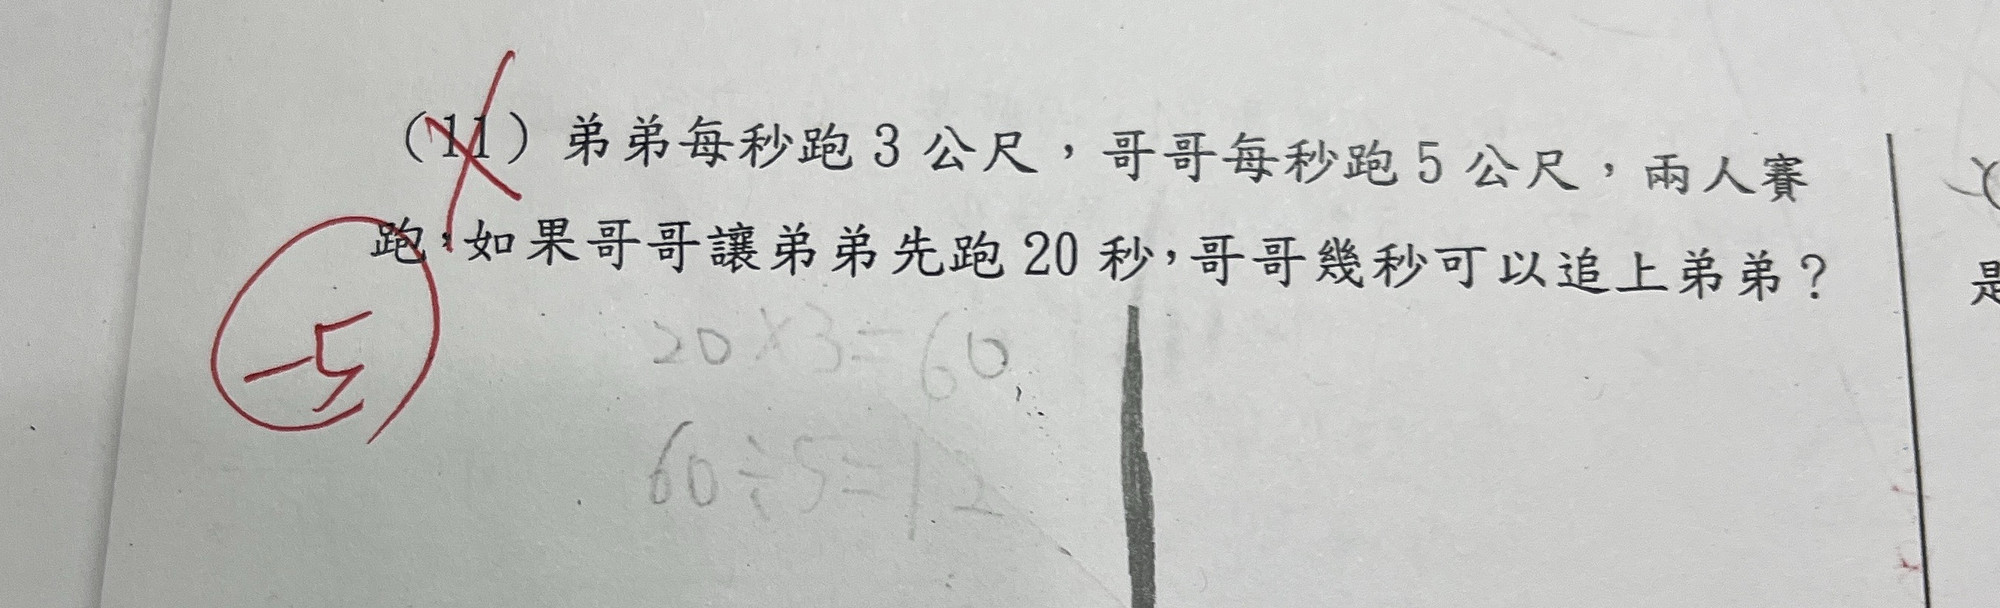 (11) 弟弟每秒跑 3 公尺，哥哥每秒跑 5 公尺，兩人賽
跑，如果哥哥讓弟弟先跑 20 秒，哥哥幾秒可以追上弟弟？
-5
20×3=60
60÷5=12
是